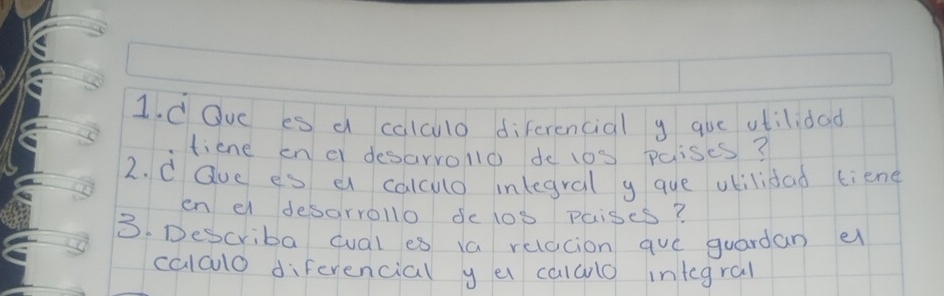 1. ¿Que es el calculo diferencial y que utilidad
tiene en el desarrollo de los paises?
2. ¿Que es el calculo integral y que utilidad tiene
en el desarrollo de los paises?
3. Describa cual es la relacion que guardan el
calculo diferencial y el calculo integral